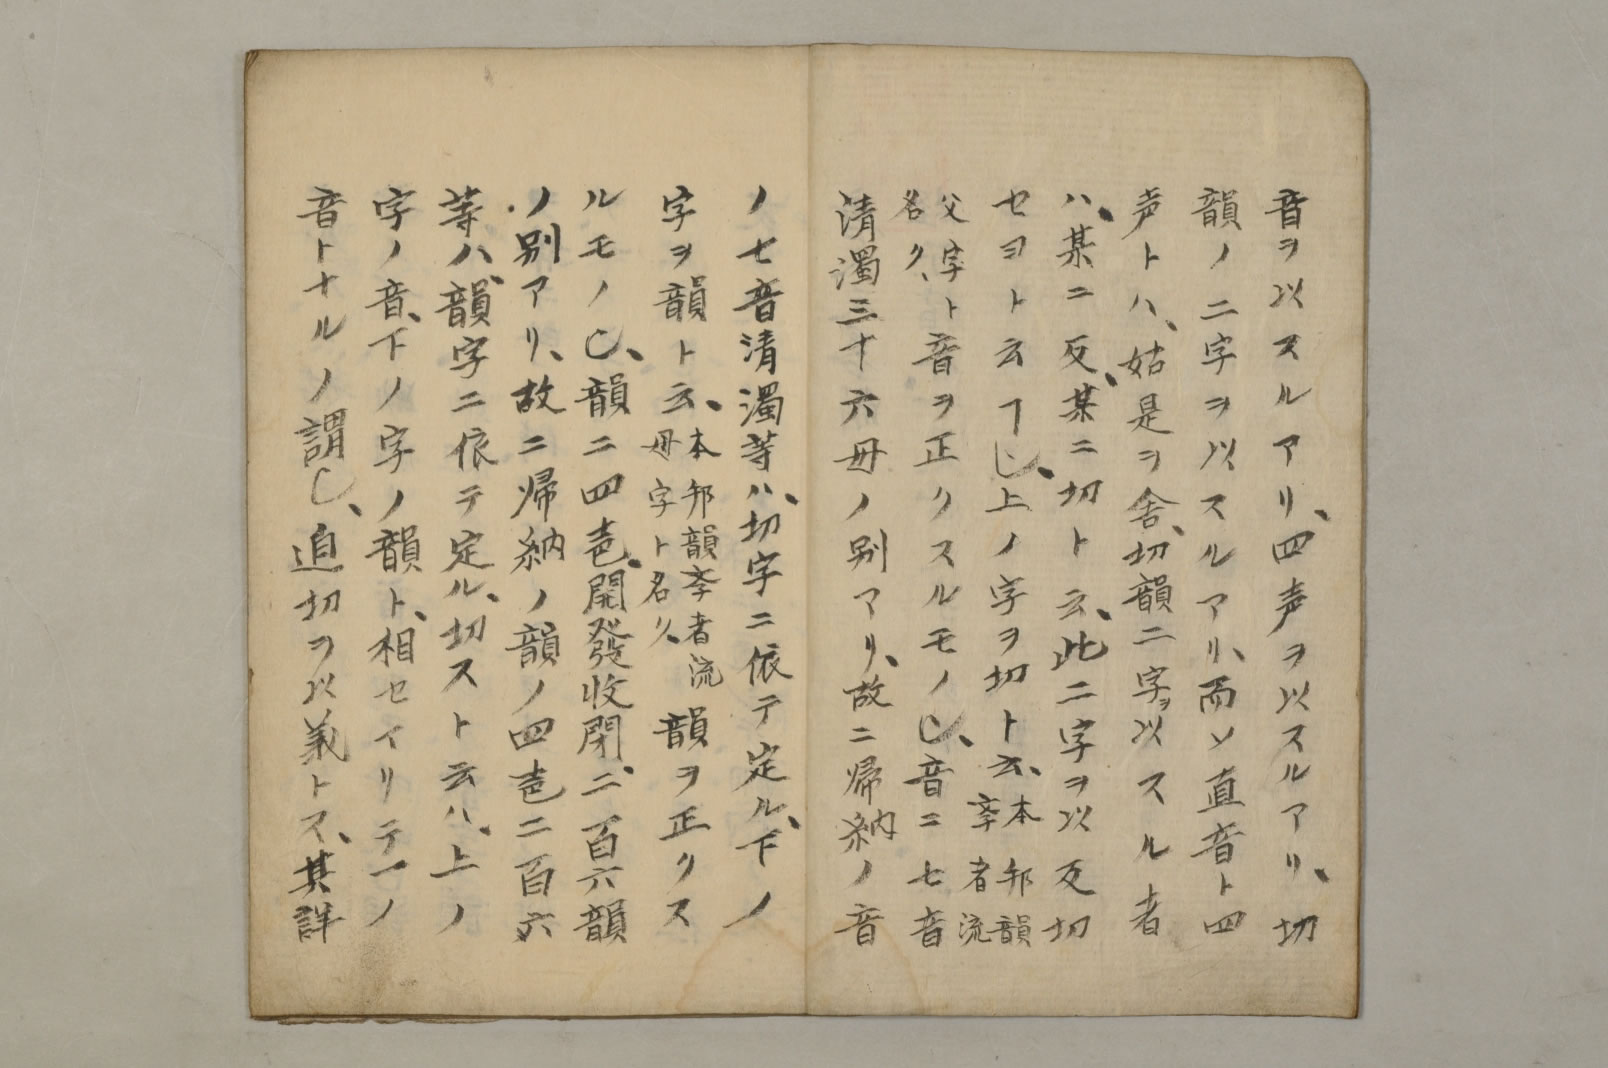 音ヲ以スルアリ、四声ヲ以スルアリ、切
韻ノ二字ヲ以スルアリ、而ソ直音ト四
声トハ、姑是ヲ舎、切韻二字ヲ以スル者
ハ、某ニ反、某ニ切ト云、此二字ヲ以反切
セヨト云ヿ也、上ノ字ヲ切ト云、本邦韻
斈者流
父字ト
名ク、音ヲ正クスルモノ也、音ニ七音
清濁三十六母ノ別アリ、故ニ帰納ノ音
ノ七音清濁等ハ、切字ニ依テ定ル、下ノ
字ヲ韻ト云、本邦韻斈者流
母字ト名ク、韻ヲ正クス
ルモノ也、韻ニ四壱、開發收閉、二百六韻
ノ別アリ、故ニ帰納ノ韻ノ四壱二百六
等ハ、韻字ニ依テ定ル、切スト云ハ、上ノ
字ノ音、下ノ字ノ韻ト、相セイリテ一ノ
音トナルノ謂也、追切ヲ以義トス、其詳